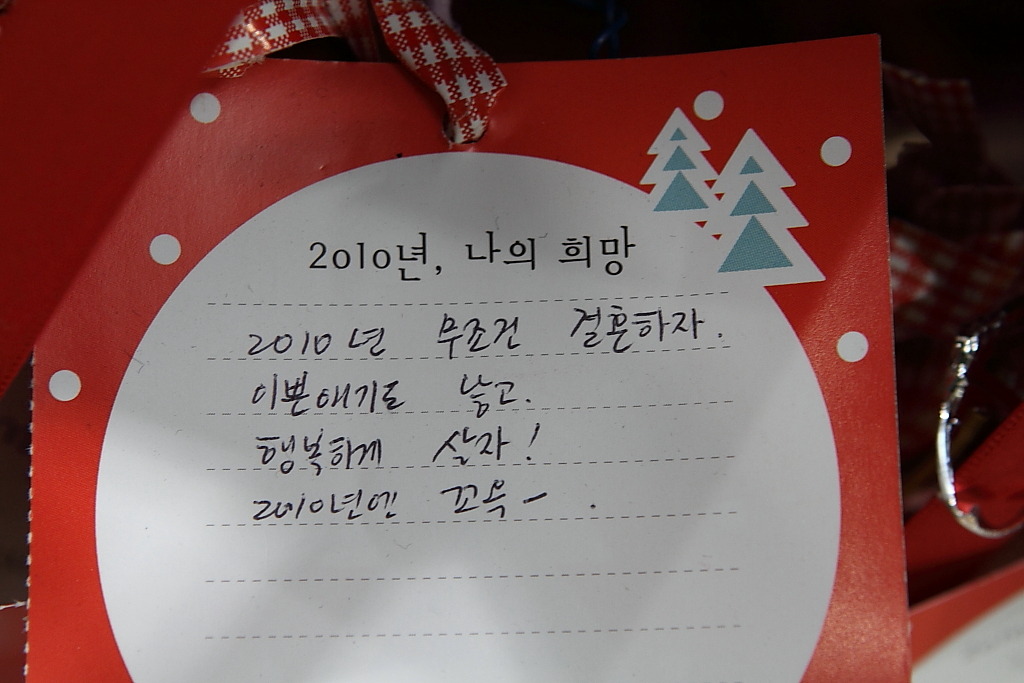 2010년, 나의 희망
2010년 무조건 결혼하자.
이쁜애기도 낳고.
행복하게 살자!
2010년엔 꼬옥ㅡ .